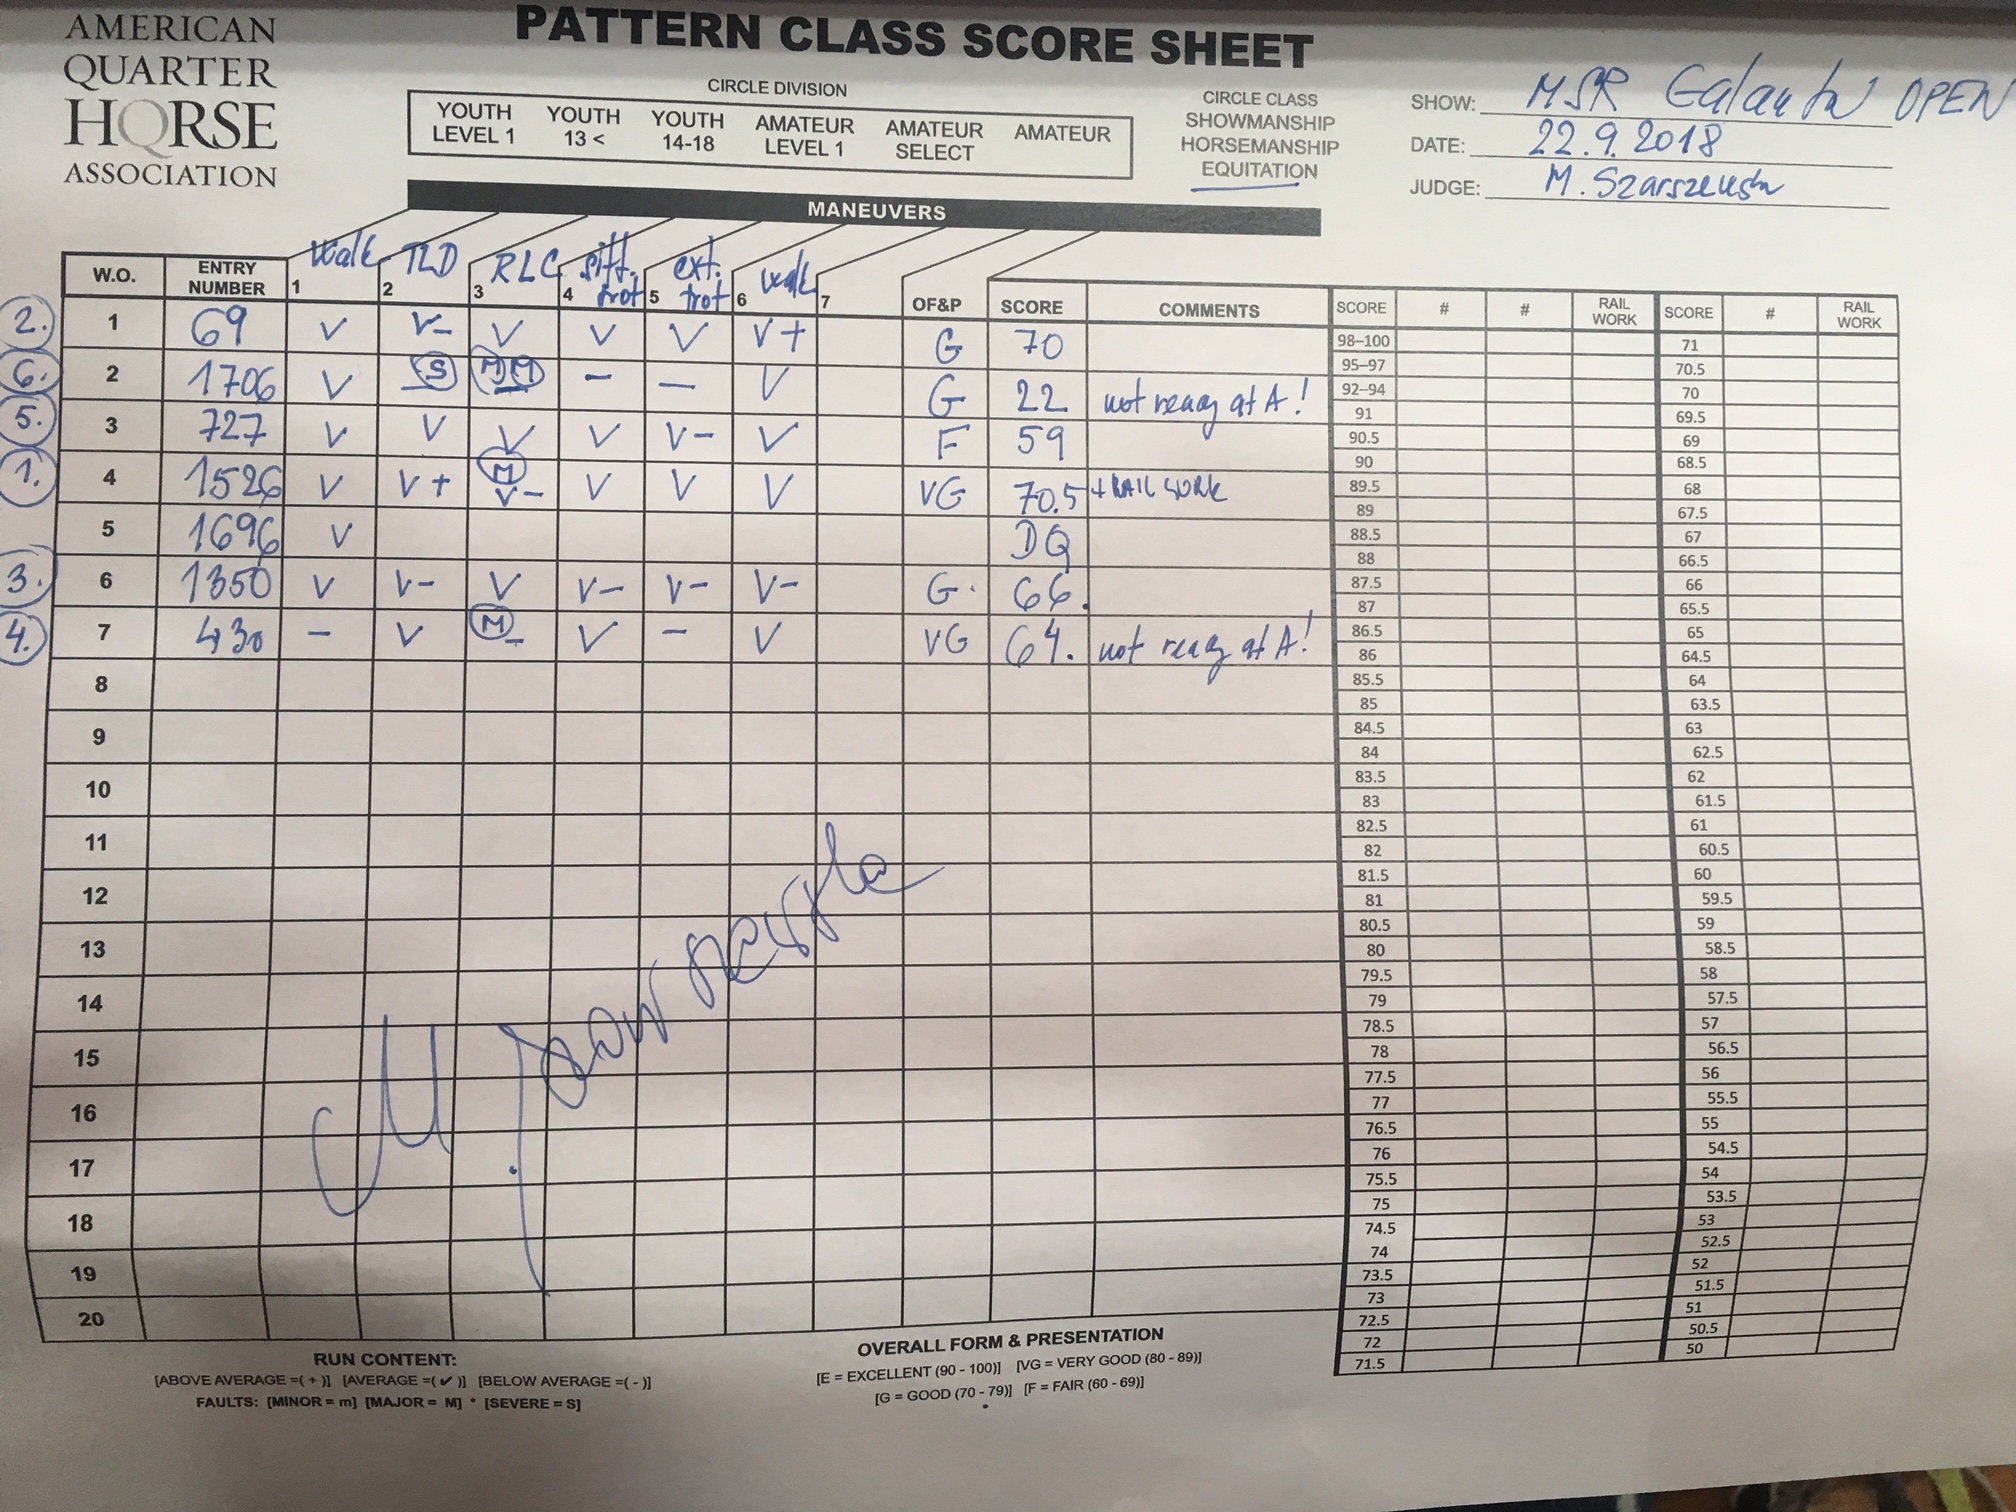 AMERICAN
QUARTER
HORSE
ASSOCIATION
PATTERN CLASS SCORE SHEET
CIRCLE DIVISION
YOUTH LEVEL 1 YOUTH 13 < YOUTH 14-18 AMATEUR LEVEL 1 AMATEUR SELECT AMATEUR
CIRCLE CLASS
SHOWMANSHIP
HORSEMANSHIP
EQUITATION
SHOW: MSR Galanta OPEN
DATE: 22.9.2018
JUDGE: M. Szarszewska
MANEUVERS
W.O. ENTRY NUMBER 1 Walk 2 TLD 3 RLC 4 sitt. trot 5 ext. trot 6 walk 7 OF&P SCORE COMMENTS
2. 1 69 V V- V V V V+ G 70
6. 2 1706 V S M M - - V G 22 not ready at A!
5. 3 727 V V V V V- V F 59
1. 4 1526 V V+ M V- V V V VG 70.5 + RAIL WORK
5 1696 V DQ
3. 6 1350 V V- V V- V- V- G. 66.
4. 7 430 - V M - V - V VG 64. not ready at A!
8
9
10
11
12
13
14
15
16
17
18
19
20
SCORE # # RAIL WORK SCORE # RAIL WORK
98–100 71
95–97 70.5
92–94 70
91 69.5
90.5 69
90 68.5
89.5 68
89 67.5
88.5 67
88 66.5
87.5 66
87 65.5
86.5 65
86 64.5
85.5 64
85 63.5
84.5 63
84 62.5
83.5 62
83 61.5
82.5 61
82 60.5
81.5 60
81 59.5
80.5 59
80 58.5
79.5 58
79 57.5
78.5 57
78 56.5
77.5 56
77 55.5
76.5 55
76 54.5
75.5 54
75 53.5
74.5 53
74 52.5
73.5 52
73 51.5
72.5 51
72 50.5
71.5 50
RUN CONTENT:
[ABOVE AVERAGE =( + )] [AVERAGE =( ✔ )] [BELOW AVERAGE =( - )]
FAULTS: [MINOR = m] [MAJOR = M] • [SEVERE = S]
OVERALL FORM & PRESENTATION
[E = EXCELLENT (90 - 100)] [VG = VERY GOOD (80 - 89)]
[G = GOOD (70 - 79)] [F = FAIR (60 - 69)]